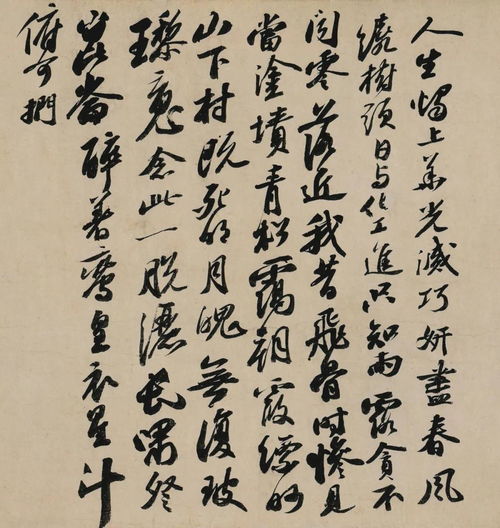 人生燭上華光滅巧妍盡春風
繞樹頭日与化工進只知雨露貪不
聞零落近我昔飛骨時慘見
當塗墳青松靄朝霞縹緲
山下村既死明月魄無復玻
瓈魂念此一脫灑長嘯登
崑崙醉著鸞皇衣星斗
俯可捫